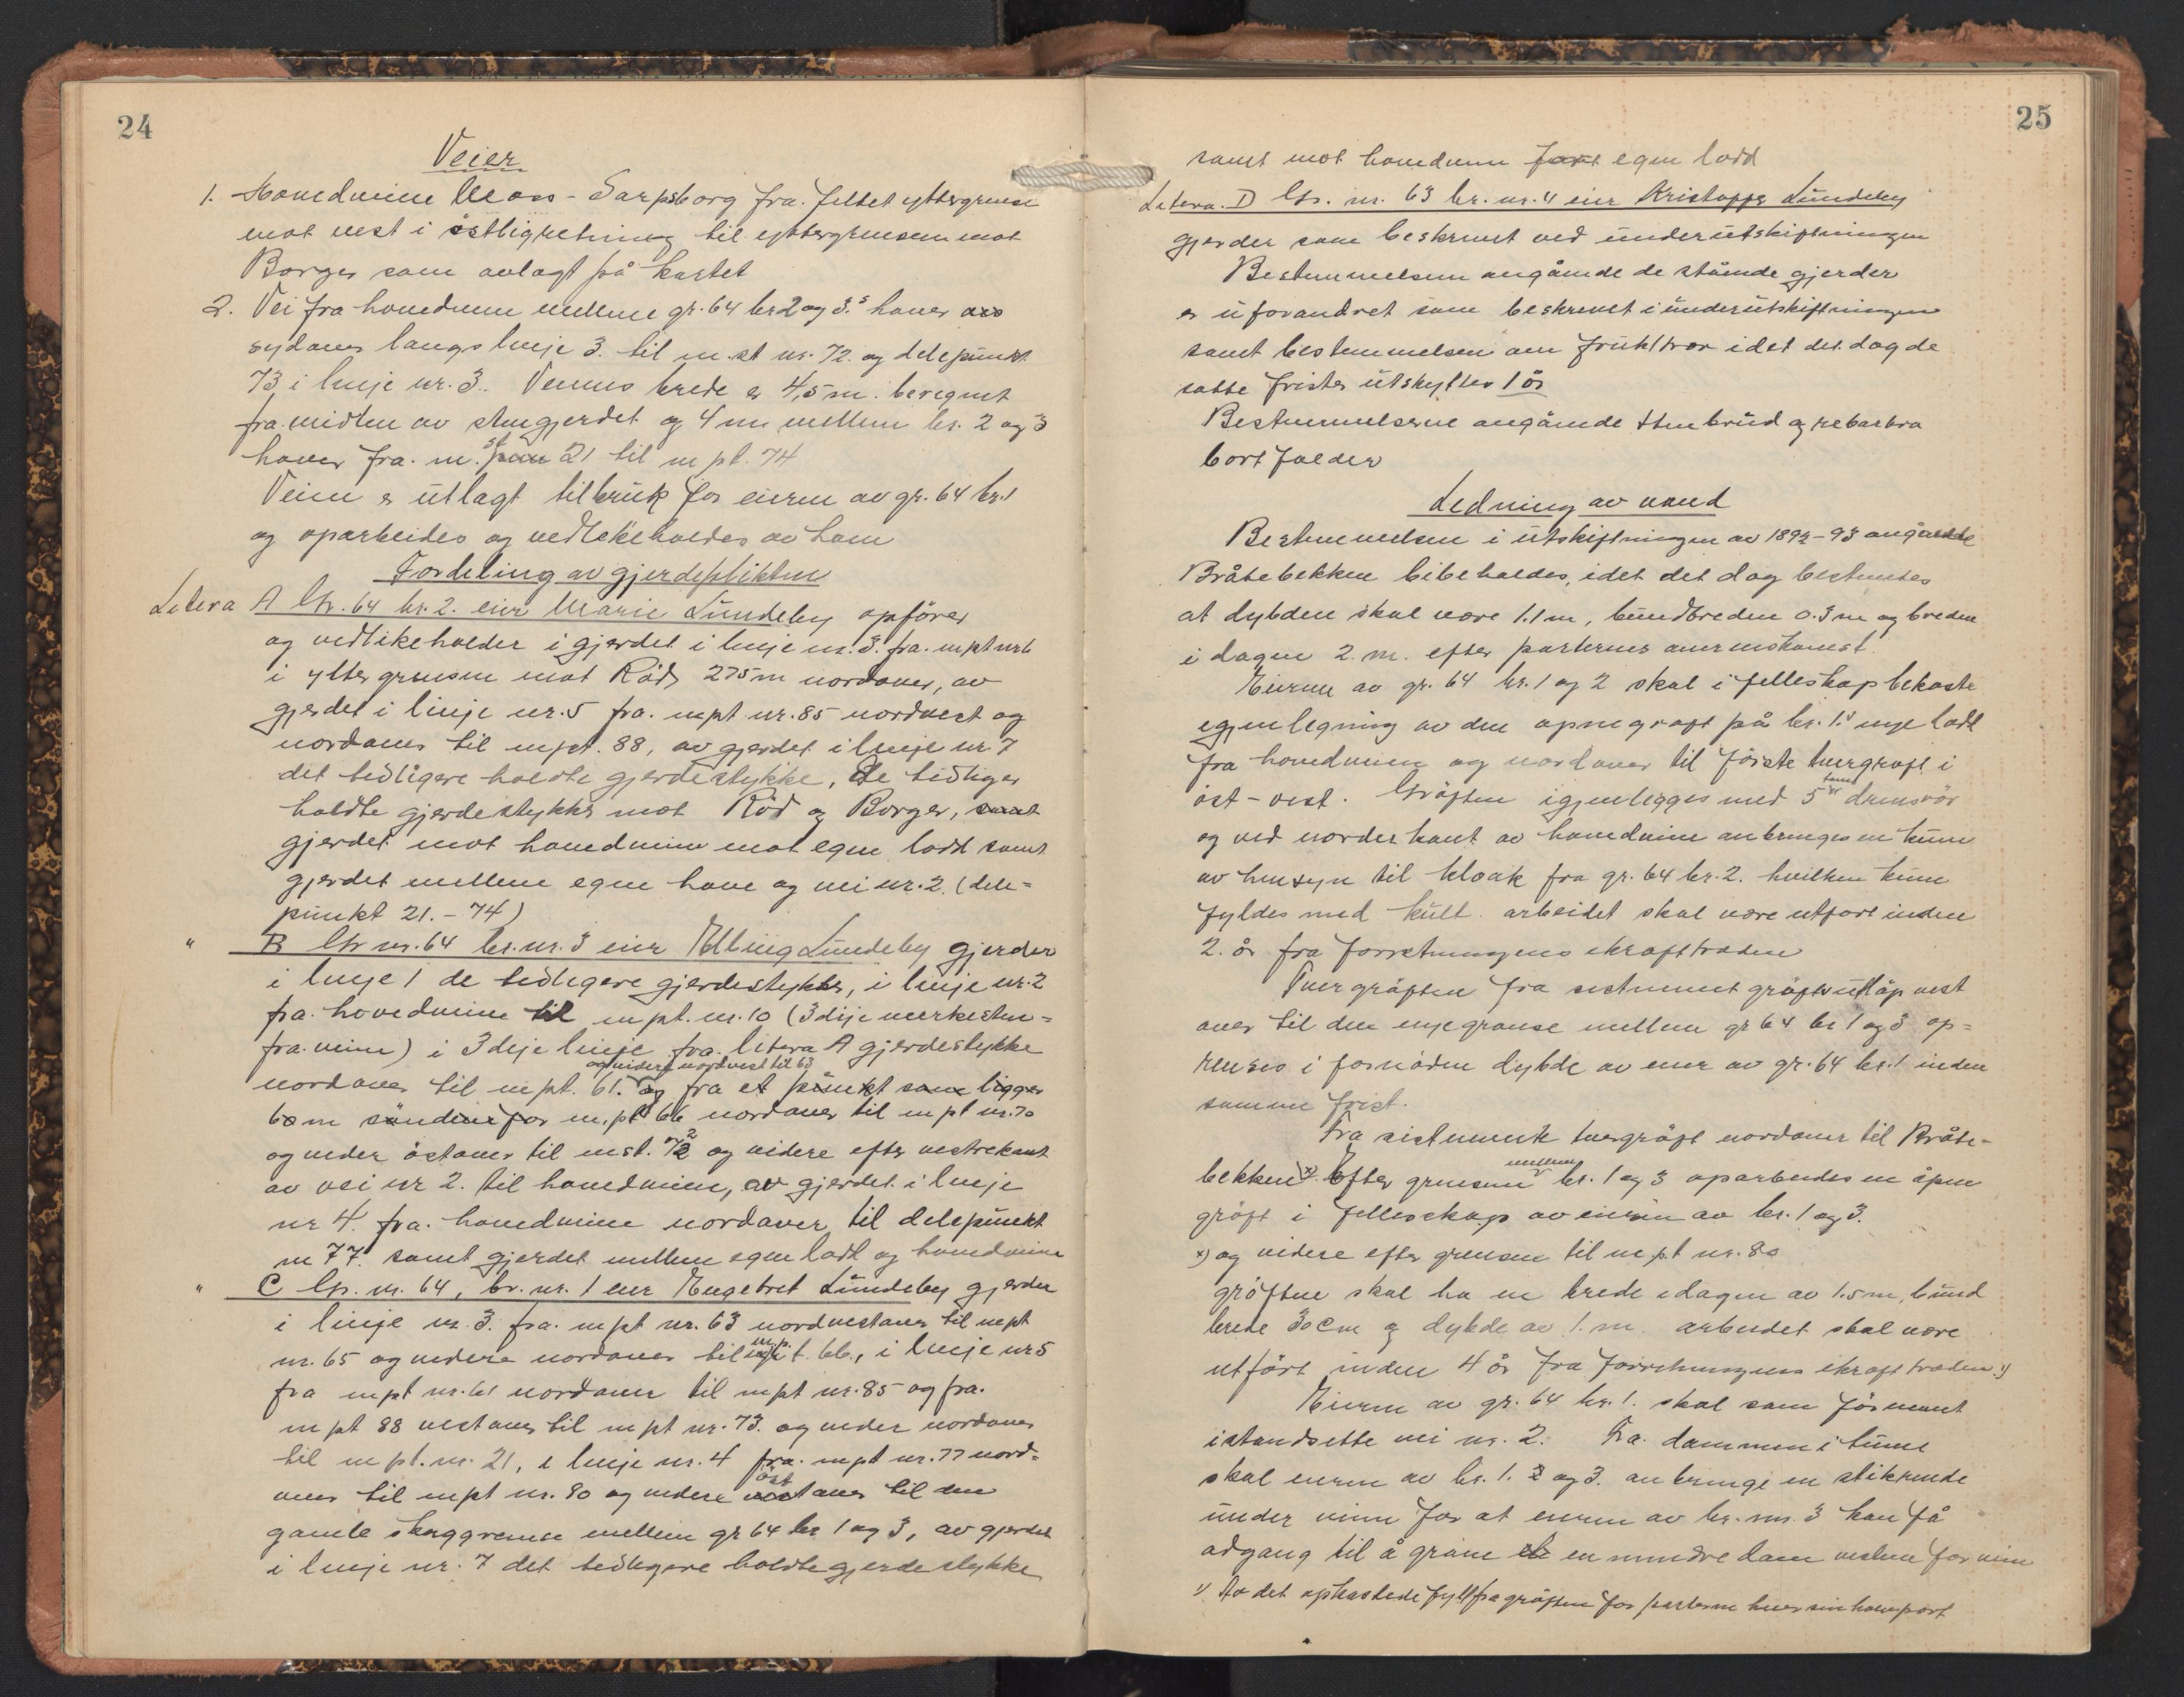 24
Veier
1. Hovedveien Moss - Sarpsborg fra feltet yttergrense
mot vest i østligretning til yttergrensen mot
Borger som avlagt på kartet
2. Vei fra hovedveien mellem gr. 64 br 2 og 3.s haver
sydover langs linje 3. til m.st nr. 72 og delepunkt
73 i linje nr. 3. Veiens brede er 4,5 m. beregnet
fra midten av stengjerdet og 4 m mellem br. 2 og 3
haver fra m. st 21 til m pt. 74
Veien er utlagt til bruk for eieren av gr. 64 br. 1
og oparbeides og vedlikeholdes av ham
Fordeling av gjerdeplikten
Litera A Gr. 64 br. 2. eier Marie Lundeby opfører
og vedlikeholder i gjerdet i linje nr. 3. fra mpt nr 6
i yttergrensen mot Röd 275 m nordover, av
gjerdet i linje nr. 5 fra mpt nr. 85 nordvest og
nordover til mpt. 88, av gjerdet i linje nr. 7
det tidligere holdte gjerdestykke, de tidliger
holdte gjerdestykke mot Röd og Borger, samt
gjerdet mot hovedveien mot egen lodd samt
gjerdet mellem egen have og vei nr. 2. (dele=
punkt 21. - 74)
" B Gr nr. 64 br. nr. 3 eier Elling Lundeby gjerder
i linje 1 de tidligere gjerdestykker, i linje nr. 2
fra hovedveien til m pt. nr. 10 (3 dije merkesten=
fra veien) i 3 dije linje fra litera A gjerdestykke
og videre nordvest til 63
nordover til mpt. 61. og fra et punkt som ligger
60 m søndenfor m. pt 66 nordover til m pt nr. 70
og veder østover til mst. 72 og videre efter vestrekant
av vei nr 2. til hovedveien, av gjerdet i linje
nr 4. fra hovedveien nordover til delepunkt
nr 77. samt gjerdet mellem egen lodd og hovedveien
" C Gr. nr. 64, br. nr. 1 eier Engebret Lundeby gjerder
i linje nr. 3. fra mpt nr. 63 nordvestover til mpt
nr. 65 og videre nordover til m.p.t. 66., i linje nr 5
fra mpt nr. 61 nordover til mpt nr. 85 og fra
m pt 88 vestover til m pt nr. 73. og veder nordover
til m pt. nr. 21, i linje nr. 4 fra mpt nr. 77 nord=
øst
over til mpt nr. 80 og videre vestover til den
gamle skoggrense mellem gr 64 br 1 og 3, av gjerdet
i linje nr. 7 det tidligere holdte gjerdestykke
25
samt mot hovedveien fort egen lodd
Litera. D Gr. nr. 63 br. nr. 4 eier Kristoffer Lundeby
gjerder som beskrevet ved underutskiftningen
Bestemmelsen angående de stående gjerder
er uforandret som beskrevet i underutskiftningen
samt bestemmelsen om frukttrær idet det dog de
satte frister utskyttes 1 år
Bestemmelserne angående stenbrud og rebarbra
bortfalder
Ledning av vand
Bestemmelsen i utskiftningen av 1892-93 angående
Bråtebekken bibeholdes, idet det dog bestemtes
at dybden skal være 1.1 m, bundbreden 0.3 m og breden
i dagen 2. m. efter parternes overenskomst.
Eieren av gr. 64 br. 1 og 2 skal i felleskap bekoste
egjenlegning av den åpne grøft på br. 1.s nye lodd
fra hovedveien og nordover til første tvergrøft i
øst - vest. Grøften igjenlegges med 5" drensrör
og ved nordre kant av hovedveien anbringes en kum
av hensyn til kloak fra gr. 64 br. 2. hvilken kum
fyldes med kult. arbeidet skal være utført inden
2. år fra forretningens ikrafttræden
Tvergrøften fra sistnevnt grøftsutløp vest
over til den nye grense mellem gr 64 br 1 og 3 op=
renses i fornøden dybde av eier av gr. 64 br. 1 inden
samme frist.
Fra sistnevnte tvergrøft nordover til Bråte-
mellem
bekken x) efter grensen br. 1 og 3 oparbeides en åpen
grøft i fellesskap av eieren av br. 1 og 3.
x) og videre efter grensen til m pt nr. 80
grøften skal ha en brede i dagen av 1.5 m, bund
brede 30 cm og dybde av 1. m. arbeidet skal være
utført inden 4 år fra forretningens ikrafttræden 1)
Eieren av gr. 64 br. 1. skal som før nevnt
istandsette vei nr. 2. Fra dammen i tunet
skal eieren av br. 1. 2 og 3. anbringe en stikrende
under veien for at eieren av br. nr. 3 kan få
adgang til å grave en mindre dam vesten for veien
1) Av det opkastede fyll fra grøften får parterne hver sin halvpart